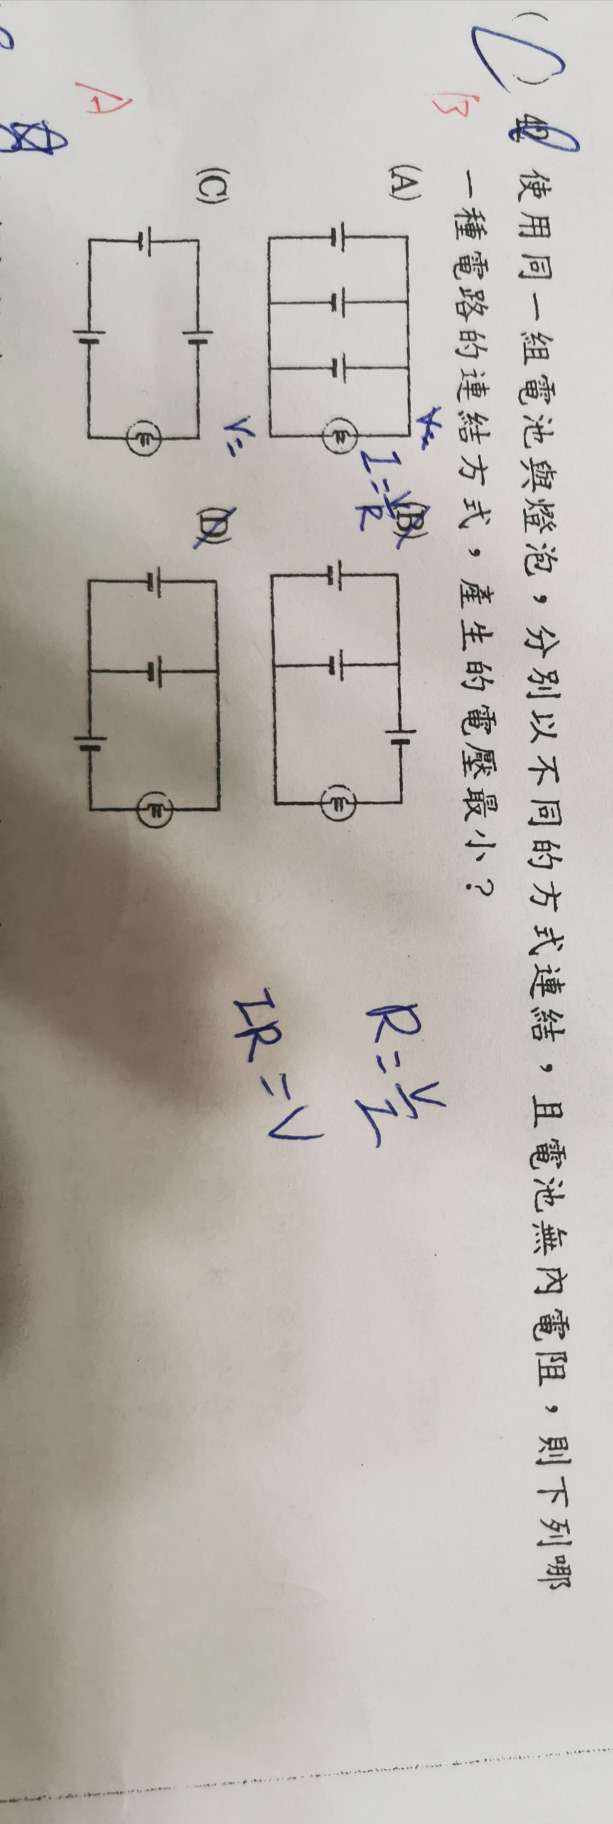 ( )42.使用同一組電池與燈泡，分別以不同的方式連結，且電池無內電阻，則下列哪
B
一種電路的連結方式，產生的電壓最小？
(A)
V=
(B)
I=V/R
R=V/I
(C)
V=
(D)
IR=V
A